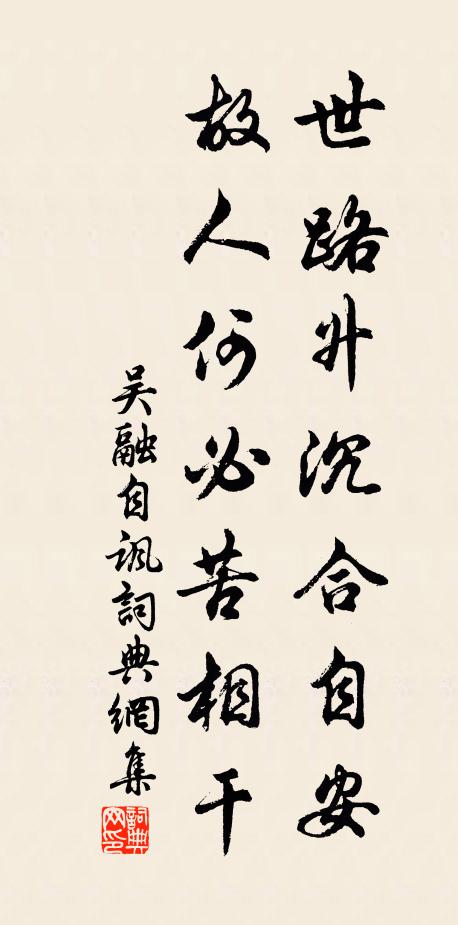 世路升沉合自安
故人何必苦相干
吴融自讽詞典網集
詞典网印